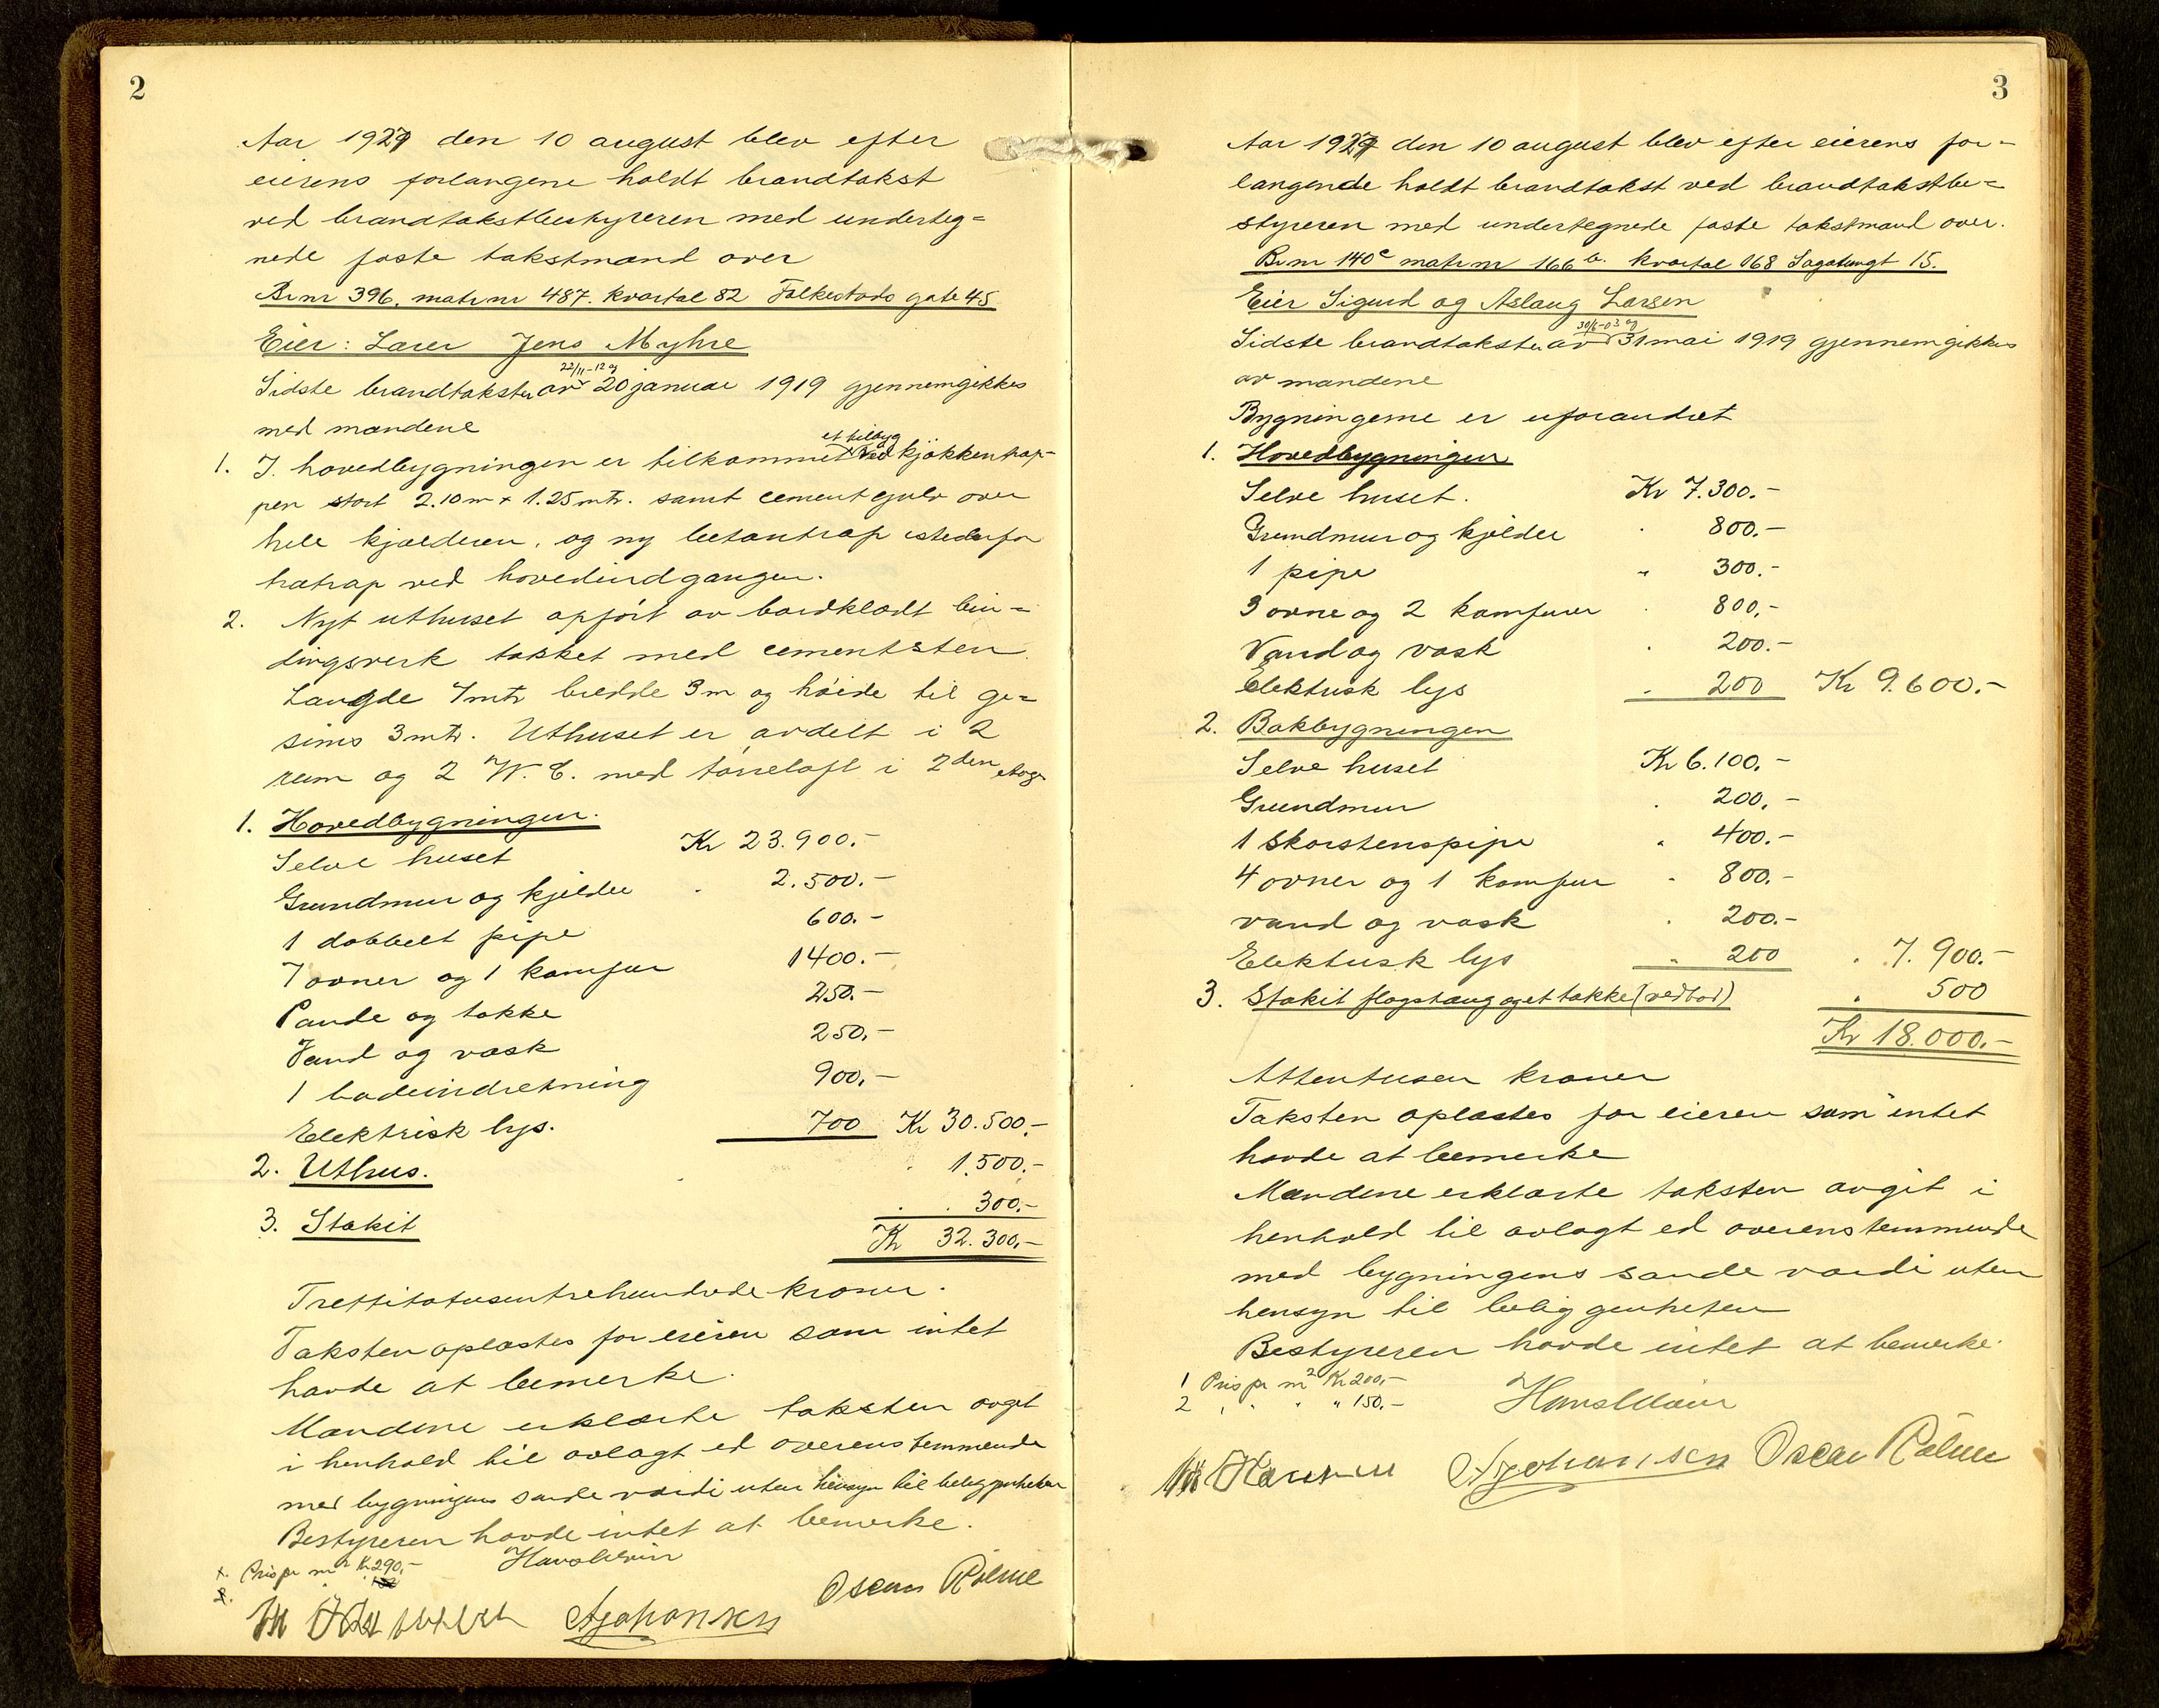 2
Aar 1927 den 10 august blev efter
eierens forlangene holdt brandtakst
ved brandtakstbestyreren med underteg-
nede faste takstmænd over
Br nr 396. matr nr 487. kvartal 82 Falkestads gate 45
Eier: Lærer Jens Myhre
22/11-12 og
Sidste brandtakster av 20 januar 1919 gjennemgikkes
med mændene
et tilbyg
1. I. hovedbygningen er tilkommet ved kjøkkentrap-
pen stort 2.10 m x 1.25 mtr. samt cementgulv over
hele kjælderen, og ny betontrap istedenfor
trætrap ved hovedindgangen.
2. Nyt uthuset opført av bordklædt bin-
dingsverk tækket med cementsten.
Længde 7 mtr bredde 3 m og høide til ge-
sims 3 mtr. Uthuset er avdelt i 2
rum og 2 W.C. med tørreloft i 2den etage
1. Hovedbygningen.
Selve huset Kr 23.900.-
Grundmur og kjelder " 2.500.-
1 dobbelt pipe 600.-
7 ovner og 1 komfur 1400.-
Pande og takke 250.-
Vand og vask 250.-
1 badeindretning 900.-
Elektrisk lys. 700 Kr 30.500.-
2. Uthus. " 1.500.-
3. Stakit " 300.-
Kr 32.300.-
Trettitotusentrehundrede kroner.
Taksten oplæstes for eieren som intet
havde at bemerke.
Mændene erklærte taksten avgit
i henhold til avlagt ed overensstemmende
med bygningens sande værdi uten hensyn til beliggenheten
Bestyreren havde intet at bemerke.
1. Pris pr m² Kr 290,-
2.
Oscar Rölme
A Johansen
3
Aar 1927 den 10 august blev efter eierens for-
langende holdt brandtakst ved brandtakstbe-
styreren med undertegnede faste takstmænd over.
Br nr 140c matr nr 166b. kvartal 168 Sagatungt 15.
Eier Sigurd og Aslaug Larsen
30/6-03 og
Sidste brandtakster av 31 mai 1919 gjennemgikkes
av mændene
Bygningerne er uforandret
1. Hovedbygningen
Selve huset. Kr 7.300.-
Grundmur og kjelder " 800.-
1 pipe " 300.-
3 ovne og 2 komfurer " 800.-
Vand og vask " 200.-
Elektrisk lys " 200 Kr 9.600.-
2. Bakbygningen
Selve huset Kr 6.100.-
Grundmur " 200.-
1 Skorstenspipe " 400.-
4 ovner og 1 komfur " 800.-
vand og vask " 200.-
Elektrisk lys " 200 " 7.900.-
3. Stakit flagstang og et takke (vedbod) " 500
Kr 18.000.-
Attentusen kroner
Taksten oplæstes for eieren som intet
havde at bemerke
Mændene erklærte taksten avgit i
henhold til avlagt ed overenstemmende
med bygningens sande værdi uten
hensyn til beliggenheten
Bestyreren havde intet at bemerke.
1 Pris pr m² Kr 200,-
2 " " " " 150.-
A Johansen Oscar Rölme